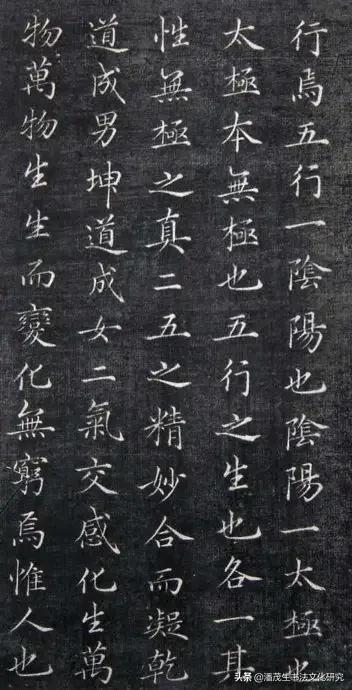 行焉五行一陰陽也陰陽一太極也
太極本無極也五行之生也各一其
性無極之真二五之精妙合而凝乾
道成男坤道成女二氣交感化生萬
物萬物生生而變化無窮焉惟人也
头条 @潘茂生书法文化研究